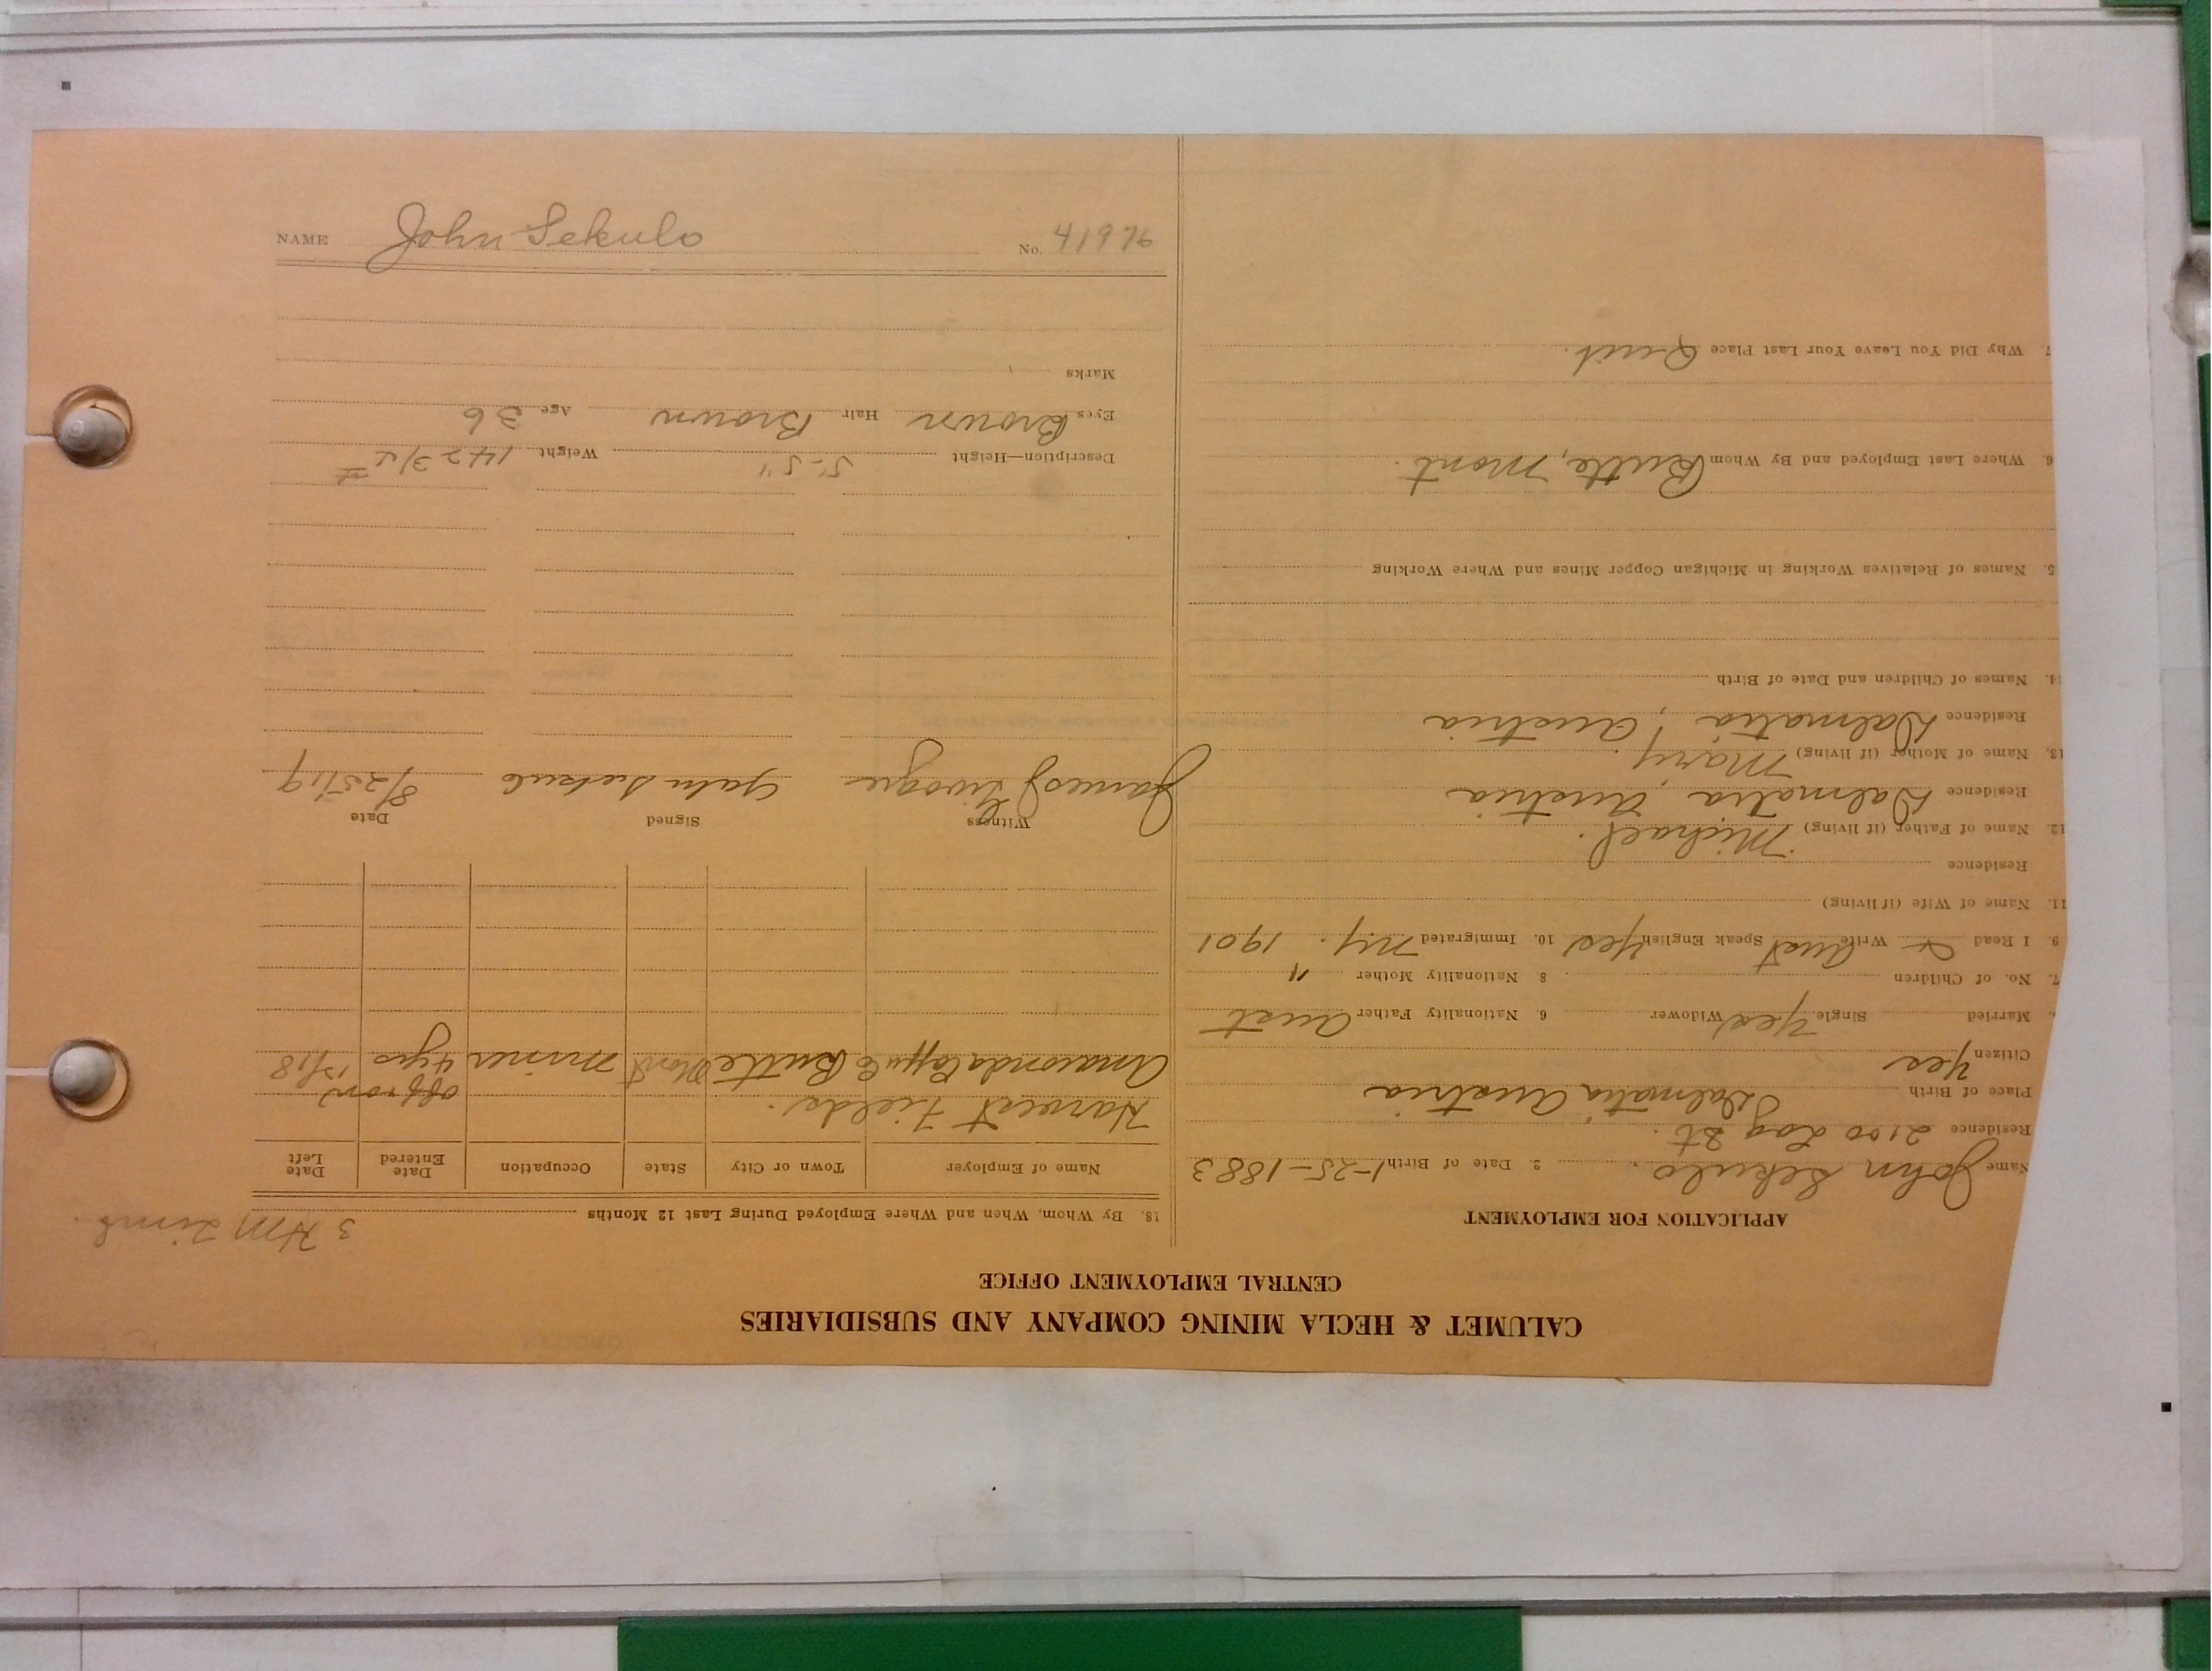 CALUMET & HECLA MINING COMPANY AND SUBSIDIARIES
CENTRAL EMPLOYMENT OFFICE
APPLICATION FOR EMPLOYMENT
Name John Sekulo. 2. Date of Birth 1-25-1883
Residence 2100 Log St.
Place of Birth Dalmatia Austria
Citizen Yes
Married Single Yes Widower 6. Nationality Father Aust
7. No. of Children 8 Nationality Mother "
9 I Read & Write Aust Speak English Yes 10. Immigrated N.Y. 1901
11. Name of Wife (if living)
Residence
12. Name of Father (if living) Michael.
Residence Dalmatia, Austria
13. Name of Mother (if living) Mary.
Residence Dalmatia, Austria
14. Names of Children and Date of Birth
5. Names of Relatives Working in Michigan Copper Mines and Where Working
6. Where Last Employed and By Whom Butte, Mont.
7 Why Did You Leave Your Last Place Quit.
18. By Whom, When and Where Employed During Last 12 Months
3 HM
Name of Employer Town or City State Occupation Date Entered Date Left
Harvest Fields. off & on
Anaconda Copper Co Butte Mont Miner 4 yrs 12/18
Witness Signed Date
James John Sekulo 8/25/19
Description—Height 5'-5" Weight 142 3/4 #
Eyes Brown Hair Brown Age 36
Marks
NAME John Sekulo No. 41976